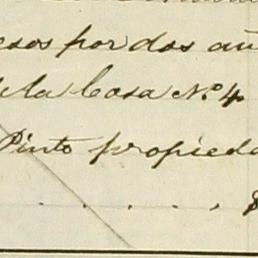 esos por dos añ
de la Casa No. 4
Pinto propieda
. . . . . . $